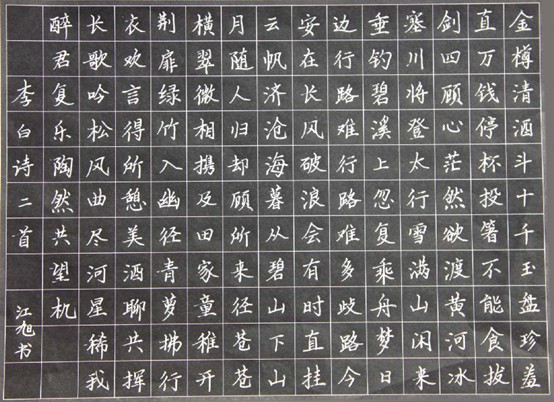 金樽清酒斗十千玉盘珍羞
直万钱停杯投箸不能食拔
剑四顾心茫然欲渡黄河冰
塞川将登太行雪满山闲来
垂钓碧溪上忽复乘舟梦日
边行路难行路难多歧路今
安在长风破浪会有时直挂
云帆济沧海暮从碧山下山
月随人归却顾所来径苍苍
横翠微相携及田家童稚开
荆扉绿竹入幽径青萝拂行
衣欢言得所憩美酒聊共挥
长歌吟松风曲尽河星稀我
醉君复乐陶然共望机
李白诗二首
江旭书